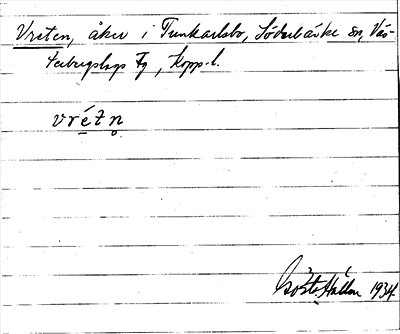 Vreten, åker i Tunkarlsbo, Söderbärke sn, Väs-
terbergslags Fg, Kopp. l.
vrét n̥
Gösta Hallm 1934.